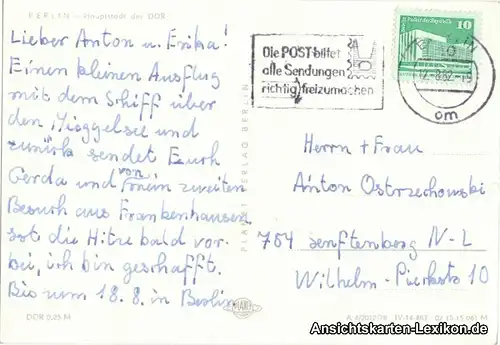 BERLIN - Hauptstadt der DDR
Lieber Anton u. Erika!
Einen kleinen Ausflug
mit dem Schiff über
den Müggelsee und
zurück sendet Euch
Gerda und von
zweiten
Besuch aus Frankenhausen,
ist die Hitze bald vor-
bei, ich bin geschafft.
Bis zum 18. 8. in Berlin
DDR 0,25 M
PLANET-VERLAG BERLIN
PLANET
Die POST bittet
alle Sendungen
richtig freizumachen
10
BERLIN
12.-8.82-15
om
Herrn + Frau
Anton Ostrzechowski
784 Senftenberg IV-L
Wilhelm-Pieckstr 10
IV-14-483
Ansichtskarten-Lexikon.de